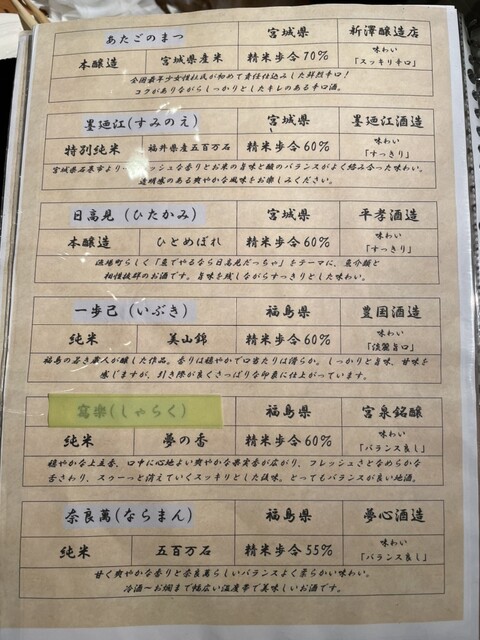 あたごのまつ 宮城県 新澤醸造店
本醸造 宮城県産米 精米歩合70% 味わい「スッキリ辛口」
全国最年少女性杜氏が初めて責任仕込みした鮮烈辛口！
コクがありながらしっかりとしたキレのある辛口酒。
墨廼江(すみのえ) 宮城県 墨廼江酒造
特別純米 福井県産五百万石 精米歩合60% 味わい「すっきり」
宮城県石巻市より…フレッシュな香りとお米の旨味と酸のバランスがよく絡み合った味わい。
透明感のある爽やかな風味をお楽しみください。
日高見(ひたかみ) 宮城県 平孝酒造
本醸造 ひとめぼれ 精米歩合60% 味わい「すっきり」
漁港町らしく「魚でやるなら日高見だっちゃ」をテーマに、魚介類と
相性抜群のお酒です。旨味を残しながらすっきりとした味わい。
一歩己(いぶき) 福島県 豊国酒造
純米 美山錦 精米歩合60% 味わい「淡麗旨口」
福島の若き蔵人が醸した作品。香りは穏やかで口当たりは滑らか。しっかりと旨味、甘味を
感じますが、引き際が良くさっぱりな印象に仕上がっています。
寫楽(しゃらく) 福島県 宮泉銘醸
純米 夢の香 精米歩合60% 味わい「バランス良し」
穏やかな上立香、口中に心地よい爽やかな果実香が広がり、フレッシュさとなめらかな
舌さわり、スラーっと消えていくスッキリとした後味。とってもバランスが良い地酒。
奈良萬(ならまん) 福島県 夢心酒造
純米 五百万石 精米歩合55% 味わい「バランス良し」
甘く爽やかな香りと奈良萬らしいバランスよく柔らかい味わい。
冷酒～お燗まで幅広い温度帯で美味しいお酒です。